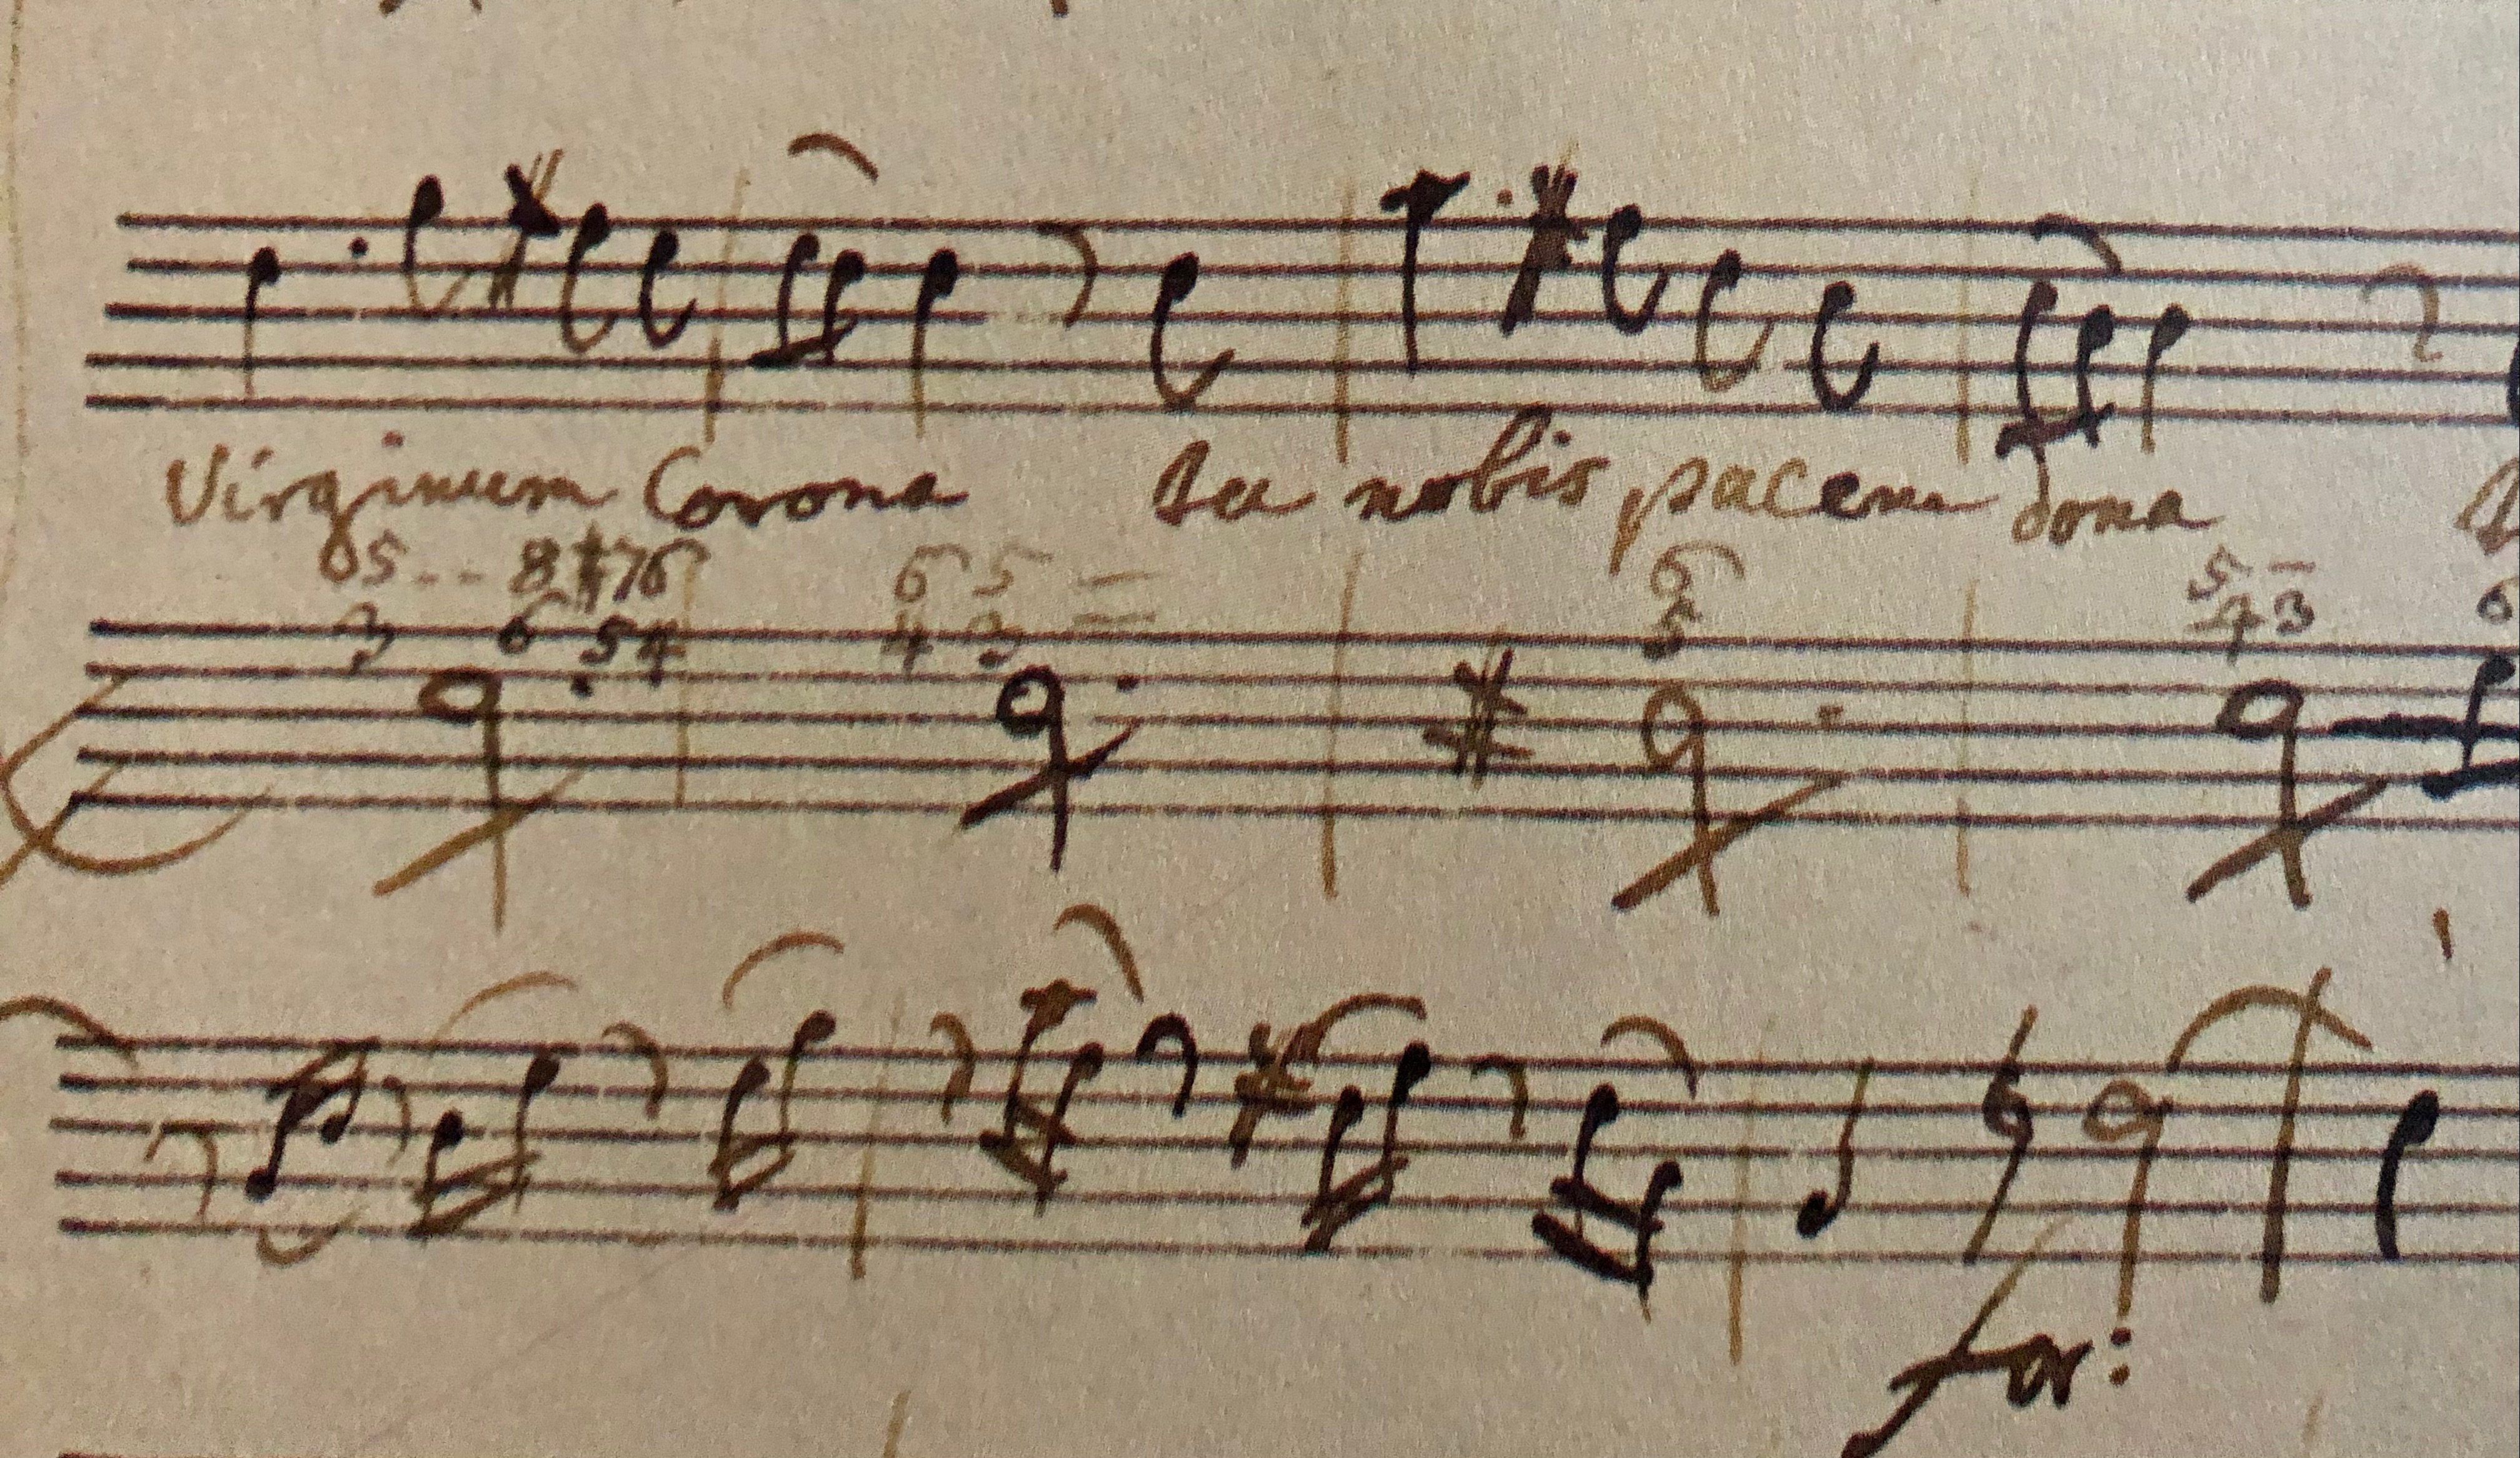 Virginum Corona tu nobis pacem dona
5 -- 8 #7 6 6 5 — 6 5 —
3 6 5 4 4 3 — 5 4 3 6
for: